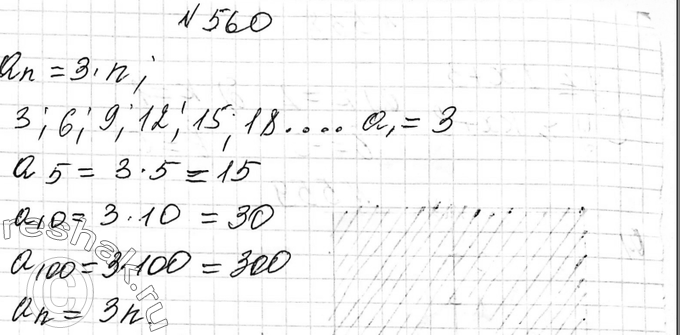 №560
aₙ = 3·n;
3; 6; 9; 12; 15; 18.... a₁ = 3
a₅ = 3·5 = 15
a₁₀ = 3·10 = 30
a₁₀₀ = 3·100 = 300
aₙ = 3n
reshak.ru